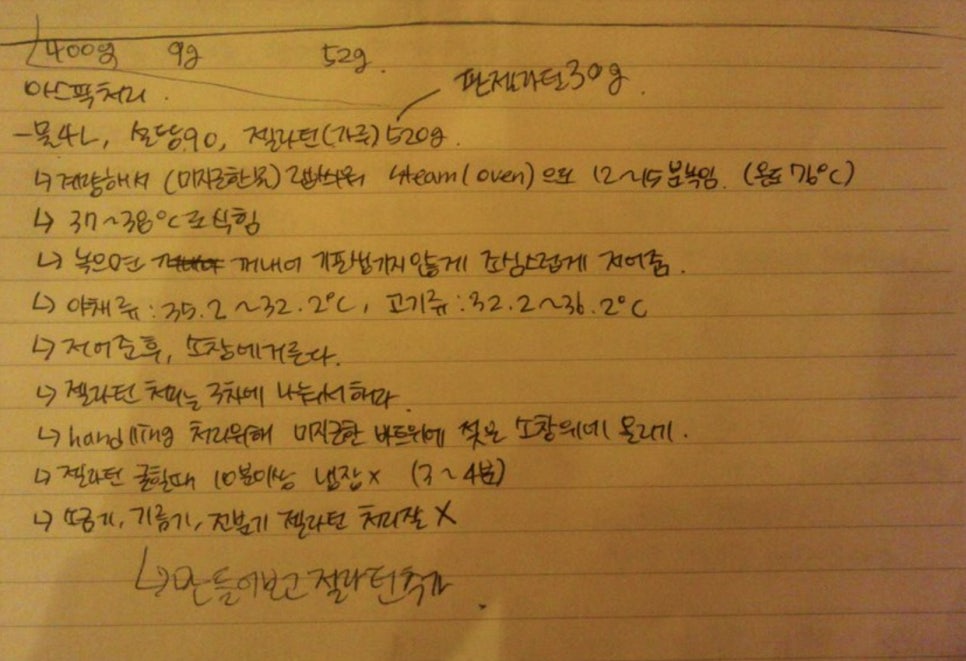 400g 9g 52g.
판젤라틴30g.
아스픽처리.
- 물4L, 설탕90, 젤라틴(가루)520g.
↳ 계량해서 (미지근한물) 랩씌워 steam(oven)으로 12~15분녹임. (온도 76°C)
↳ 37~38°C로식힘
↳ 녹으면 꺼내어 기판생기지않게 조심스럽게 저어줌.
↳ 야채류 : 35.2~32.2°C, 고기류 : 32.2~36.2°C
↳ 저어준후, 소창에거른다.
↳ 젤라틴 처리는 3차에 나눠서하라.
↳ handling 처리위해 미지근한 바트위에 젖은 소창위에 올리기.
↳ 젤라틴 굳힐때 10분이상 냉장 x (3~4분)
↳ 소금기, 기름기, 전분기 젤라틴 처리잘 X
↳ 만들어보고 젤라틴추가.